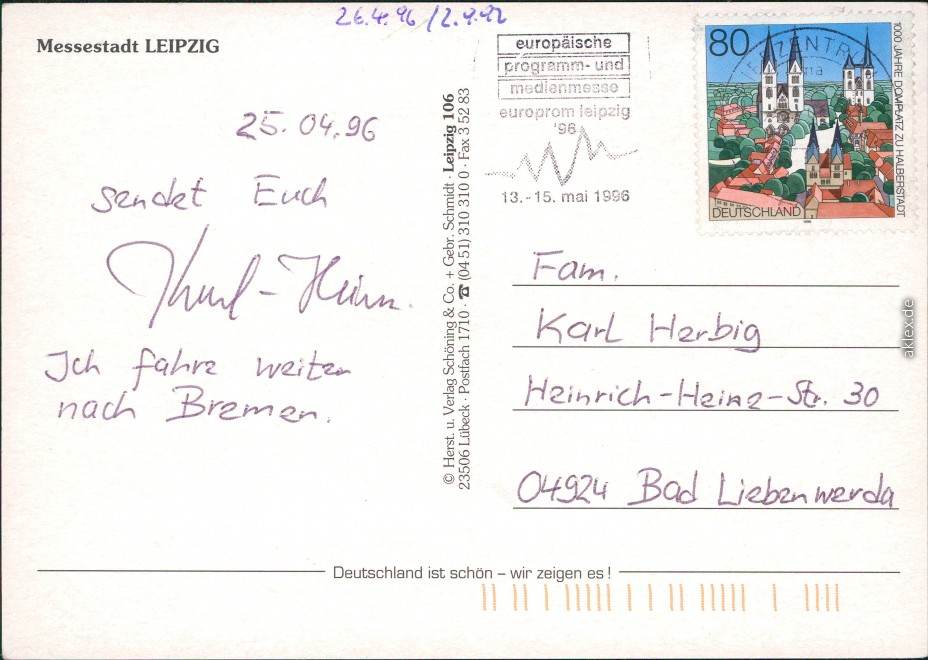 26.4.96 /2.9.92
Messestadt LEIPZIG
25.04.96
sendet Euch
Karl-Heinz.
Ich fahre weiter
nach Bremen.
© Herst. u. Verlag Schöning & Co. + Gebr. Schmidt · Leipzig 106
23506 Lübeck · Postfach 1710 · ☎ (04 51) 310 310 0 · Fax 3 52 83
europäische
programm- und
medienmesse
europrom leipzig
'96
13.-15. mai 1996
80
1000 JAHRE DOMPLATZ ZU HALBERSTADT
DEUTSCHLAND
Fam.
Karl Herbig
Heinrich-Heine-Str. 30
04924 Bad Liebenwerda
Deutschland ist schön – wir zeigen es !
aklex.de